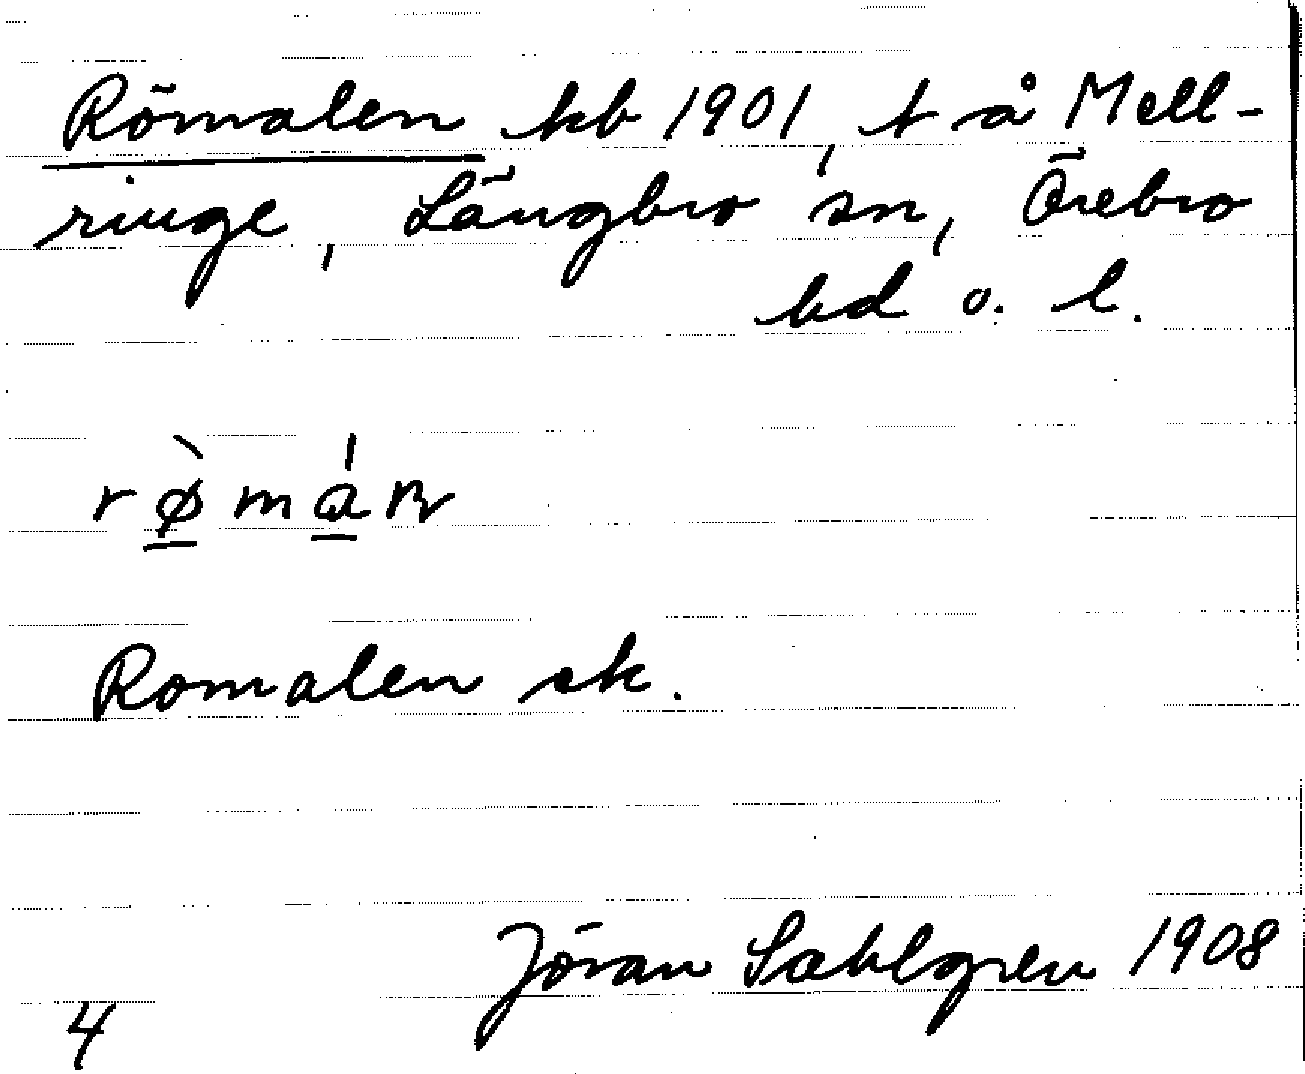 Römalen kb 1901, t å Mell-
ringe, Längbro sn, Örebro
hd o. l.
rø̀máṇ
Romalen ek.
Jöran Sahlgren 1908
4